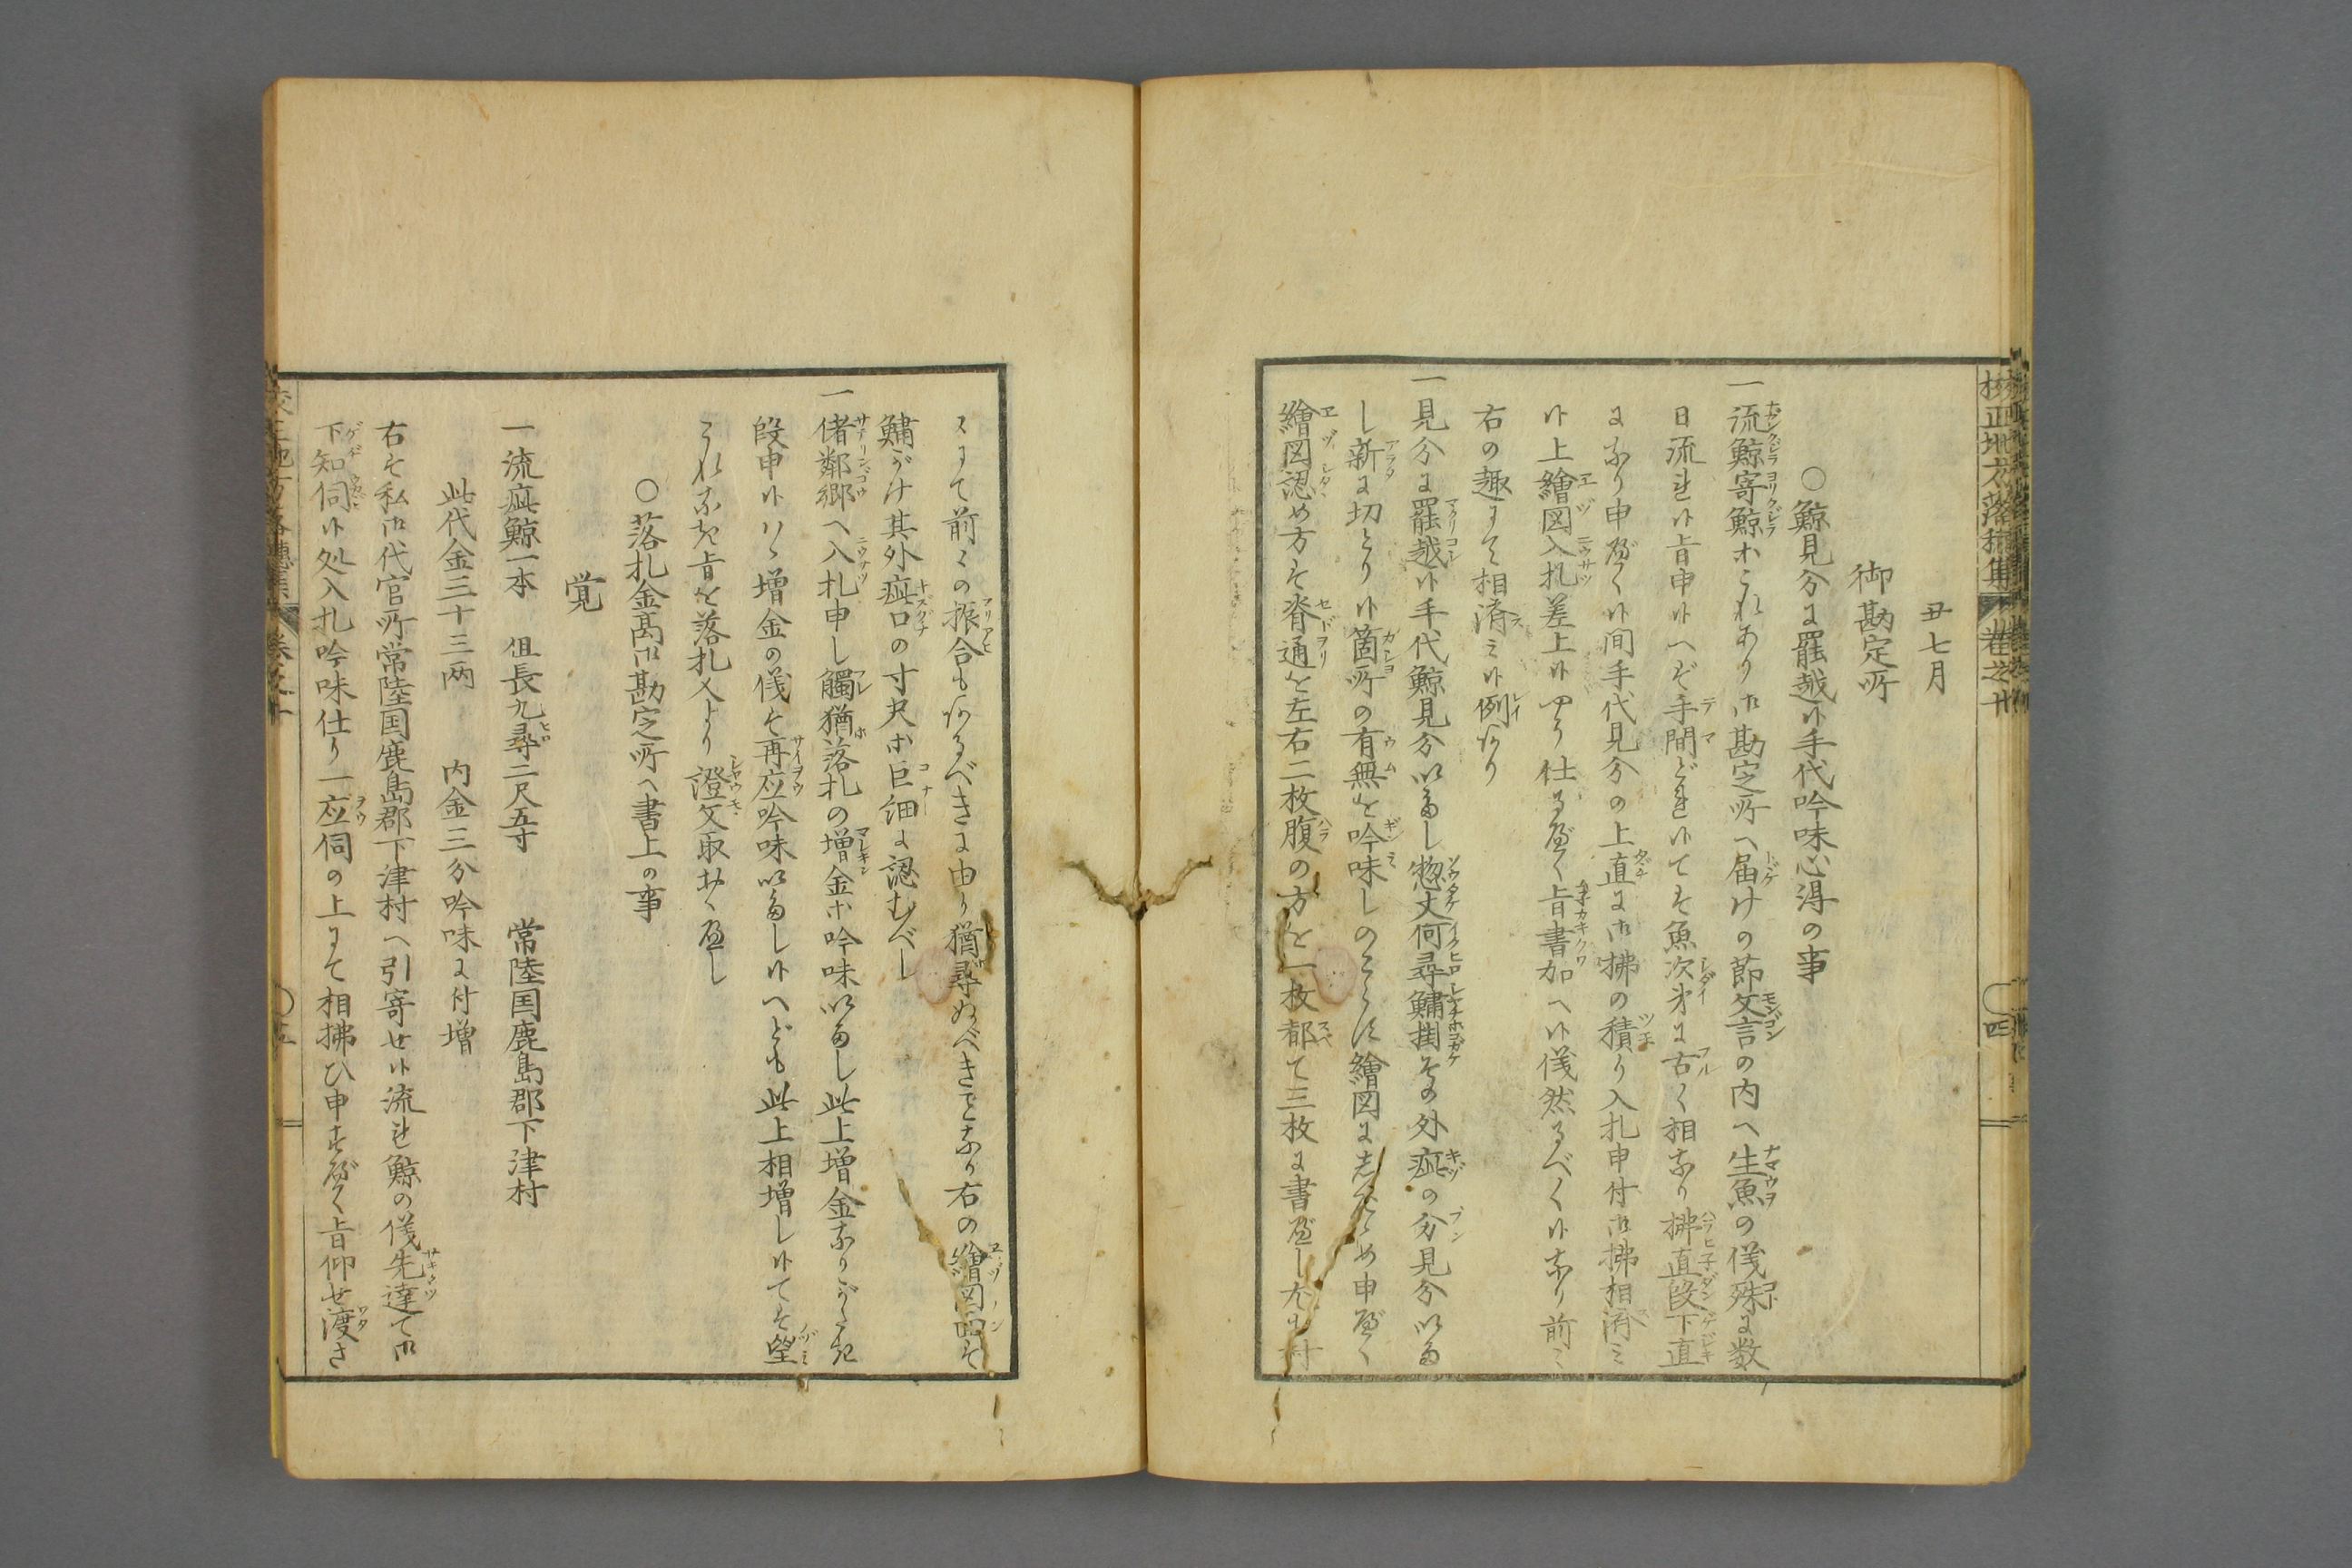 丑七月
御勘定所
○鯨見分に罷越候手代吟味心得の事
一流鯨寄鯨等これあり御勘定所へ届けの節文言の内へ生魚の儀殊に数
日流れ候旨申候へば手間どれ候ては魚次第に古く相なり拂直段下直
になり申べく候間手代見分の上直に御拂の積り入札申付御拂相済み
候上繪図入札差上候やう仕るべく旨書加へ候儀然るべく候なり前々
右の趣にて相済み候例あり
一見分に罷越候手代鯨見分いたし惣丈何尋鱐掛その外疵の分見分いた
し新に切とり候箇所の有無を吟味しのこらず繪図にしたゝめ申べく
繪図認め方は脊通を左右二枚腹の方を一枚都て三枚に書べし尤も村
々にて前々の振合もあるべきに由り猶尋ぬべきことなり右の繪図面は
鱐がけ其外疵口の寸尺等巨細に認むべし
一偖鄰郷へ入札申し觸猶落札の増金等吟味いたし此上増金なりがたき
段申候はゞ増金の儀は再応吟味いたし候へども此上相増し候ては望
これなき旨を落札人より證文取おくべし
○落札金高御勘定所へ書上の事
覚
一流疵鯨一本　但長九尋二尺五寸　常陸国鹿島郡下津村
此代金三十三両　内金三分吟味に付増
右は私御代官所常陸国鹿島郡下津村へ引寄せ候流れ鯨の儀先達て御
下知伺候処入札吟味仕り一応伺の上にて相拂ひ申すべく旨仰せ渡さ